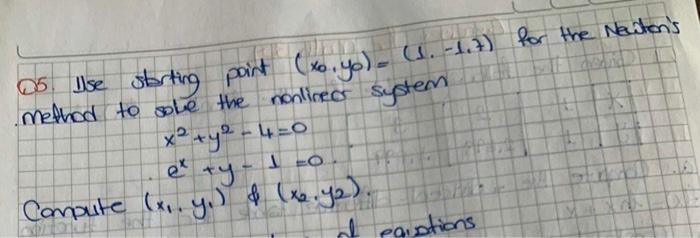 Q5. Use starting point (x₀, y₀) = (1, -1.7) for the Newton's
method to solve the nonlinear system
x² + y² - 4 = 0
eˣ + y - 1 = 0.
Compute (x₁, y₁) & (x₂, y₂).
equations